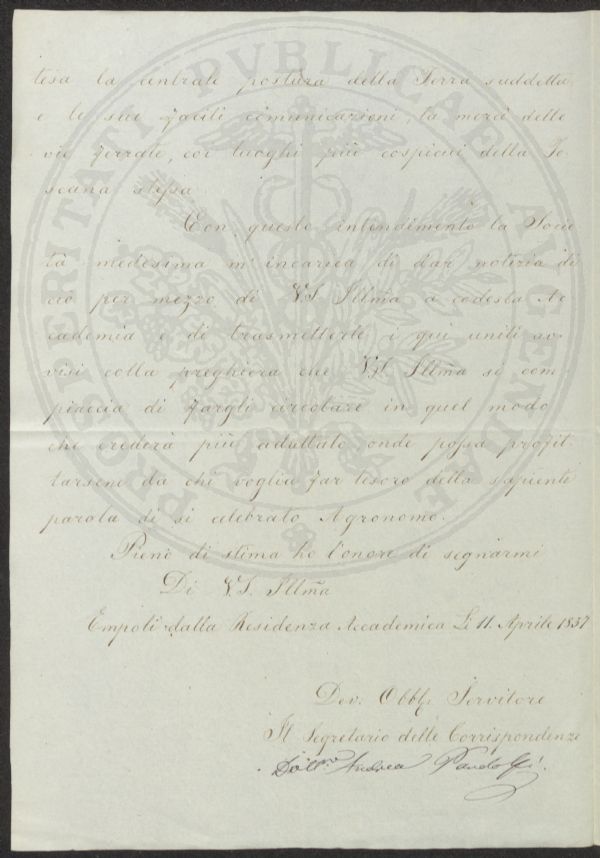 tesa la centrale postura della Terra suddetta
e le sue facili comunicazioni, la mercè delle
vie ferrate, coi luoghi più cospicui della To-
scana stessa
Con questo intendimento la Socie
tà medesima m'incarica di dar notizia di
ciò per mezzo di V.S. Illm̃a a codesta Ac
cademia e di trasmetterle i qui uniti av-
visi colla preghiera che V.S. Illm̃a si com
piaccia di fargli circolare in quel modo
che crederà più adattato onde possa profit-
tarsene da chi voglia far tesoro della sapiente
parola di sì celebrato Agronomo.
Pieno di stima ho l'onore di segnarmi
Di V.S. Illm̃a
Empoli dalla Residenza Accademica Li 11. Aprile 1857
Dev. Obblg. Servitore
Il Segretario delle Corrispondenze
Dott. Andrea Pandolfi.
PROSPERITATI PVBLICAE AVGENDAE